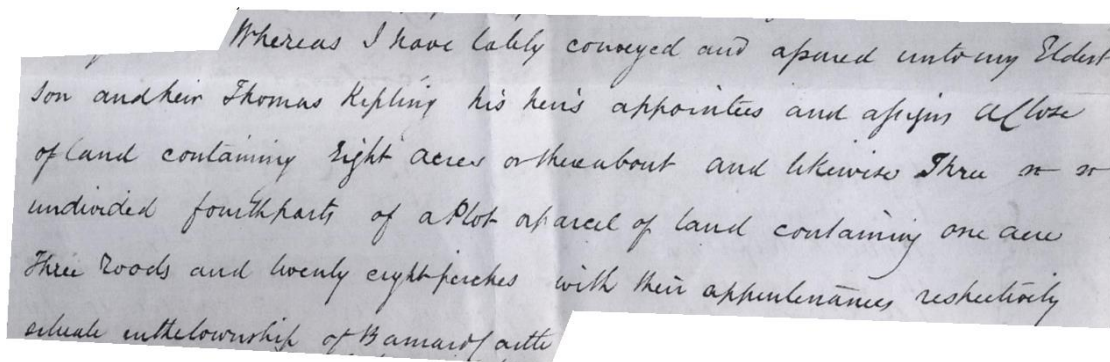 Whereas I have lately conveyed and assured unto my Eldest
Son and heir Thomas Kipling his heirs appointees and assigns a Close
of land containing Eight acres or thereabout and likewise Three
undivided fourth parts of a Plot or parcel of land containing one acre
Three Roods and twenty eight perches with their appurtenances respectively
situate in the township of Barnard Castle